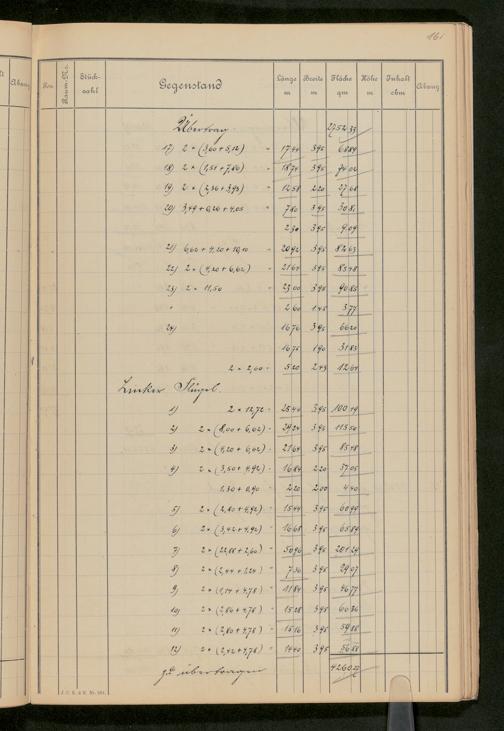 161
Pos. Raum-No. Stück-zahl Gegenstand Länge m Breite m Fläche qm Höhe m Inhalt cbm Abzug
Übertrag 2752 33
17) 2 × (3,60 + 5,12) = 17 44 3 95 68 89
18) 2 × (1,51 + 7,86) = 18 74 3 95 74 02
19) 2 × (2,36 + 3,93) = 12 58 2 20 27 68
20) 3,49 + 0,26 + 4,05 = 7 80 3 95 30 81
2 30 3 95 9 09
21) 6,62 + 4,20 + 10,10 = 20 92 3 95 82 63
22) 2 × (4,20 + 6,62) = 21 64 3 95 85 48
23) 2 × 11,50 = 23 00 3 95 90 85
" 2 60 1 45 3 77
24) 16 76 3 95 66 20
16 75 1 90 31 83
2 × 2,60 = 5 20 2 43 12 64
Linker Flügel.
1) 2 × 12,72 = 25 44 3 95 100 49
2) 2 × (8,00 + 6,62) = 29 24 3 95 115 50
3) 2 × (4,20 + 6,62) = 21 64 3 95 85 48
4) 2 × (3,50 + 4,92) = 16 84 2 20 37 05
1,30 + 0,90 2 20 2 00 4 40
5) 2 × (2,80 + 4,92) = 15 44 3 95 60 99
6) 2 × (3,42 + 4,92) = 16 68 3 95 65 89
7) 2 × (22,88 + 2,60) = 50 96 3 95 201 29
8) 2 × (2,44 + 1,24) = 7 36 3 95 29 07
9) 2 × (1,14 + 4,78) = 11 84 3 95 46 77
10) 2 × (2,86 + 4,78) = 15 28 3 95 60 36
11) 2 × (2,80 + 4,78) = 15 16 3 95 59 88
12) 2 × (2,42 + 4,78) = 14 40 3 95 56 88
zu übertragen 4260